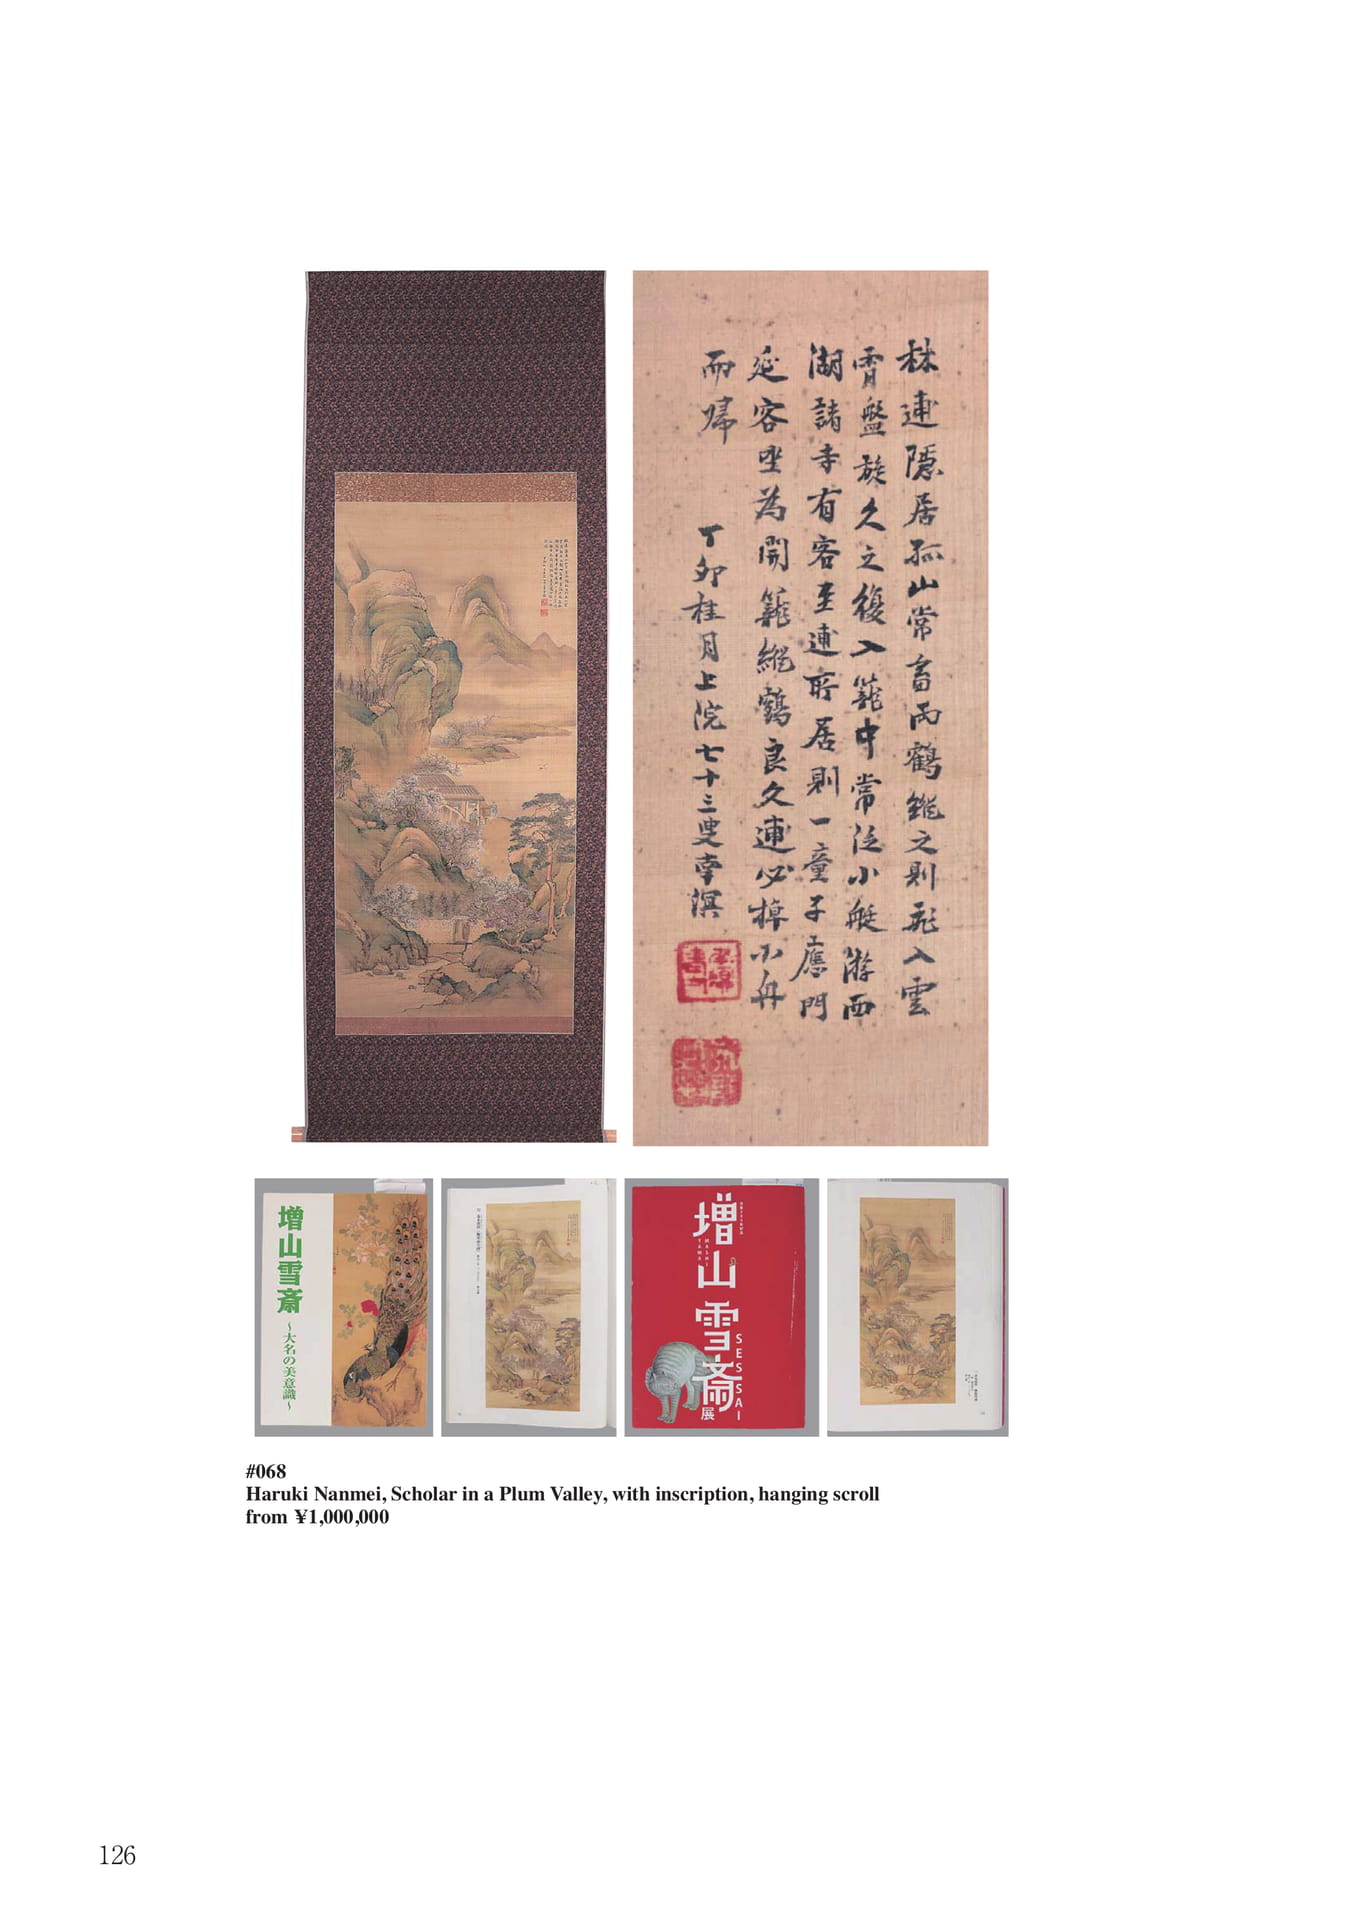 林逋隱居孤山常畜両鶴縦之則飛入雲
霄盤旋久之復入籠中常泛小艇游西
湖諸寺有客至逋所居則一童子應門
延客坐為開籠縦鶴良久逋必棹小舟
而帰 丁卯桂月上浣七十三叟南溟
増山雪斎
～大名の美意識～
増山雪斎展
MASHI
YAMA
SESSAI
#068
Haruki Nanmei, Scholar in a Plum Valley, with inscription, hanging scroll
from ¥1,000,000
126